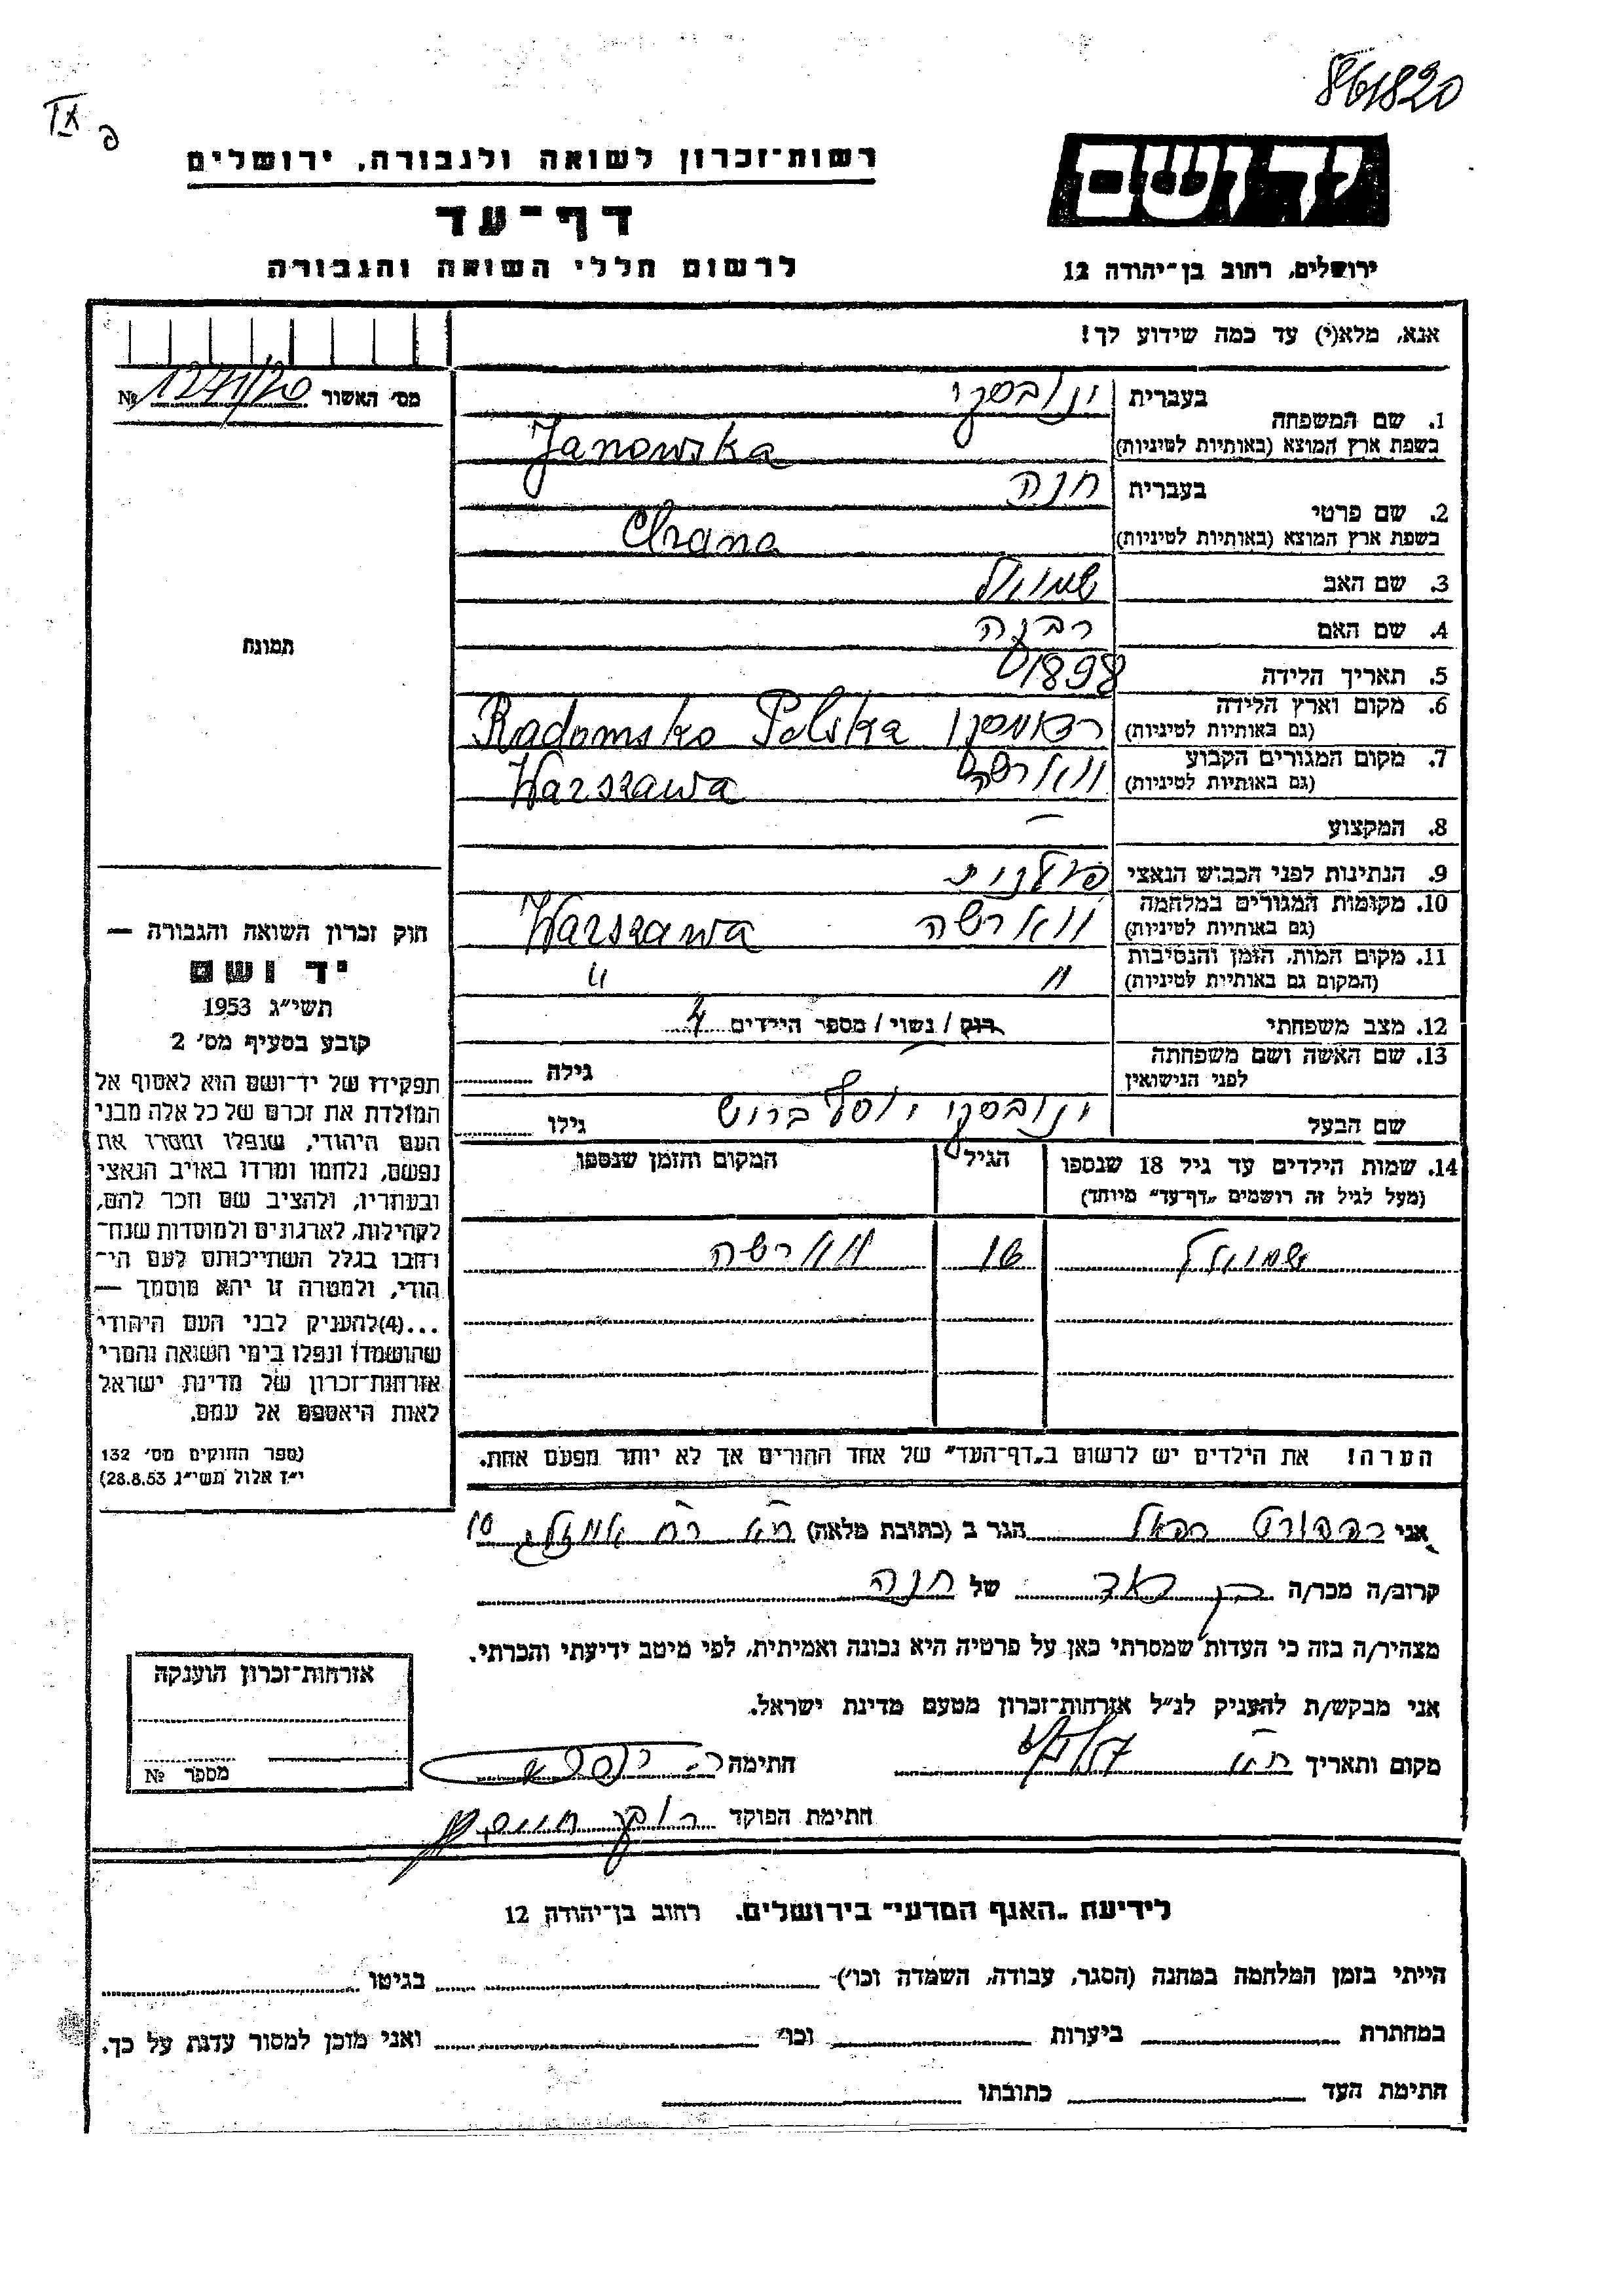 861820
IX
פ
יד ושם
ירושלים, רחוב בן־יהודה 12
רשות־זכרון לשואה ולגבורה, ירושלים
דף־עד
לרשום חללי השואה והגבורה
אנא, מלא(י) עד כמה שידוע לך!
מס׳ האשור № 1271/20
תמונה
1. שם המשפחה בעברית ינובסקי
בשפת ארץ המוצא (באותיות לטיניות) Janowska
2. שם פרטי בעברית חנה
בשפת ארץ המוצא (באותיות לטיניות) Chana
3. שם האב שמואל
4. שם האם
5. תאריך הלידה 1898
6. מקום וארץ הלידה
(גם באותיות לטיניות) רדומסקו Radomsko Polska
7. מקום המגורים הקבוע
(גם באותיות לטיניות) ווארשה Warszawa
8. המקצוע —
9. הנתינות לפני הכבוש הנאצי פולנית
10. מקומות המגורים במלחמה
(גם באותיות לטיניות) ווארשה Warszawa
11. מקום המות, הזמן והנסיבות
(המקום גם באותיות לטיניות) " "
12. מצב משפחתי רווק / נשוי / מספר הילדים 4
13. שם האשה ושם משפחתה
לפני הנישואין גילה
שם הבעל ינובסקי יוסף ברוש גילו
14. שמות הילדים עד גיל 18 שנספו הגיל המקום והזמן שנספו
(מעל לגיל זה רושמים „דף־עד” מיוחד)
שמואל 16 ווארשה
הערה! את הילדים יש לרשום ב„דף־העד” של אחד ההורים אך לא יותר מפעם אחת.
חוק זכרון השואה והגבורה —
יד ושם
תשי״ג 1953
קובע בסעיף מס׳ 2
תפקידו של יד־ושם הוא לאסוף אל
המולדת את זכרם של כל אלה מבני
העם היהודי, שנפלו ומסרו את
נפשם, נלחמו ומרדו באויב הנאצי
ובעוזריו, ולהציב שם וזכר להם,
לקהילות, לארגונים ולמוסדות שנח־
רחבו בגלל השתייכותם לעם הי־
הודי, ולמטרה זו יהא מוסמך —
...(4)להעניק לבני העם היהודי
שהושמדו ונפלו בימי השואה והמרי
אזרחות־זכרון של מדינת ישראל
לאות היאספם אל עמם.
(ספר החוקים מס׳ 132
י״ז אלול תשי״ג 28.8.53)
אני הגר ב (כתובת מלאה) 10
קרוב/ה מכר/ה בן דוד של חנה
מצהיר/ה בזה כי העדות שמסרתי כאן על פרטיה היא נכונה ואמיתית, לפי מיטב ידיעתי והכרתי.
אני מבקש/ת להעניק לנ״ל אזרחות־זכרון מטעם מדינת ישראל.
מקום ותאריך חתימה
חתימת הפוקד
אזרחות־זכרון הוענקה
מספר №
לידיעת „האגף המדעי” בירושלים. רחוב בן־יהודה 12
הייתי בזמן המלחמה במחנה (הסגר, עבודה, השמדה וכו׳) בגיטו
במחתרת ביערות וכו׳ ואני מוכן למסור עדות על כך.
חתימת העד כתובתו